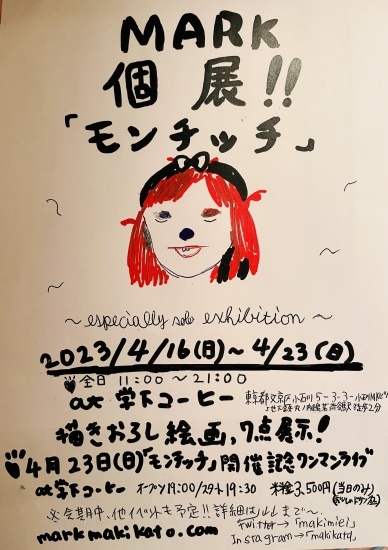 MARK
個展!!
「モンチッチ」
~especially solo exhibition~
2023/4/16(日)~4/23(日)
全日 11:00~21:00
at 学下コーヒー
東京都文京区小石川5-3-3-
徒歩2分
描きおろし絵画,7点展示!
4月23日(日)「モンチッチ」開催記念ワンマンライブ
at 学下コーヒー オープン19:00/スタート19:30 料金3,500円(当日のみ)
※会期中、他イベントも予定!!詳細は
markmakikato.com
Twitter→「makimiel」
Instagram→「makikato」